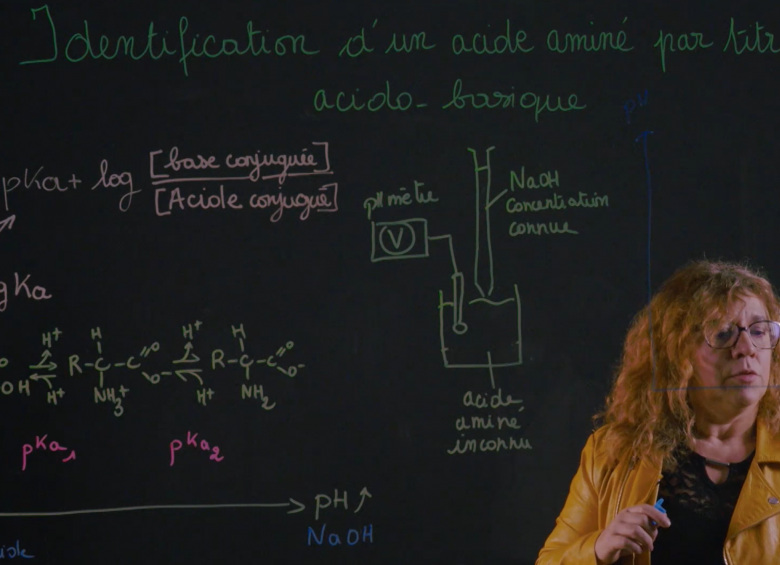 Identification d'un acide aminé par titr
acido-basique
pKa + log [base conjuguée]
[Acide conjugué]
gKa
pH mètre
V
NaOH
concentration
connue
pH
H⁺ H H⁺ H
OH R-C-C=O R-C-C=O
O- O-
H⁺ NH₃⁺ H⁺ NH₂
pKa₁ pKa₂
acide
aminé
inconnu
pH ↗
NaOH